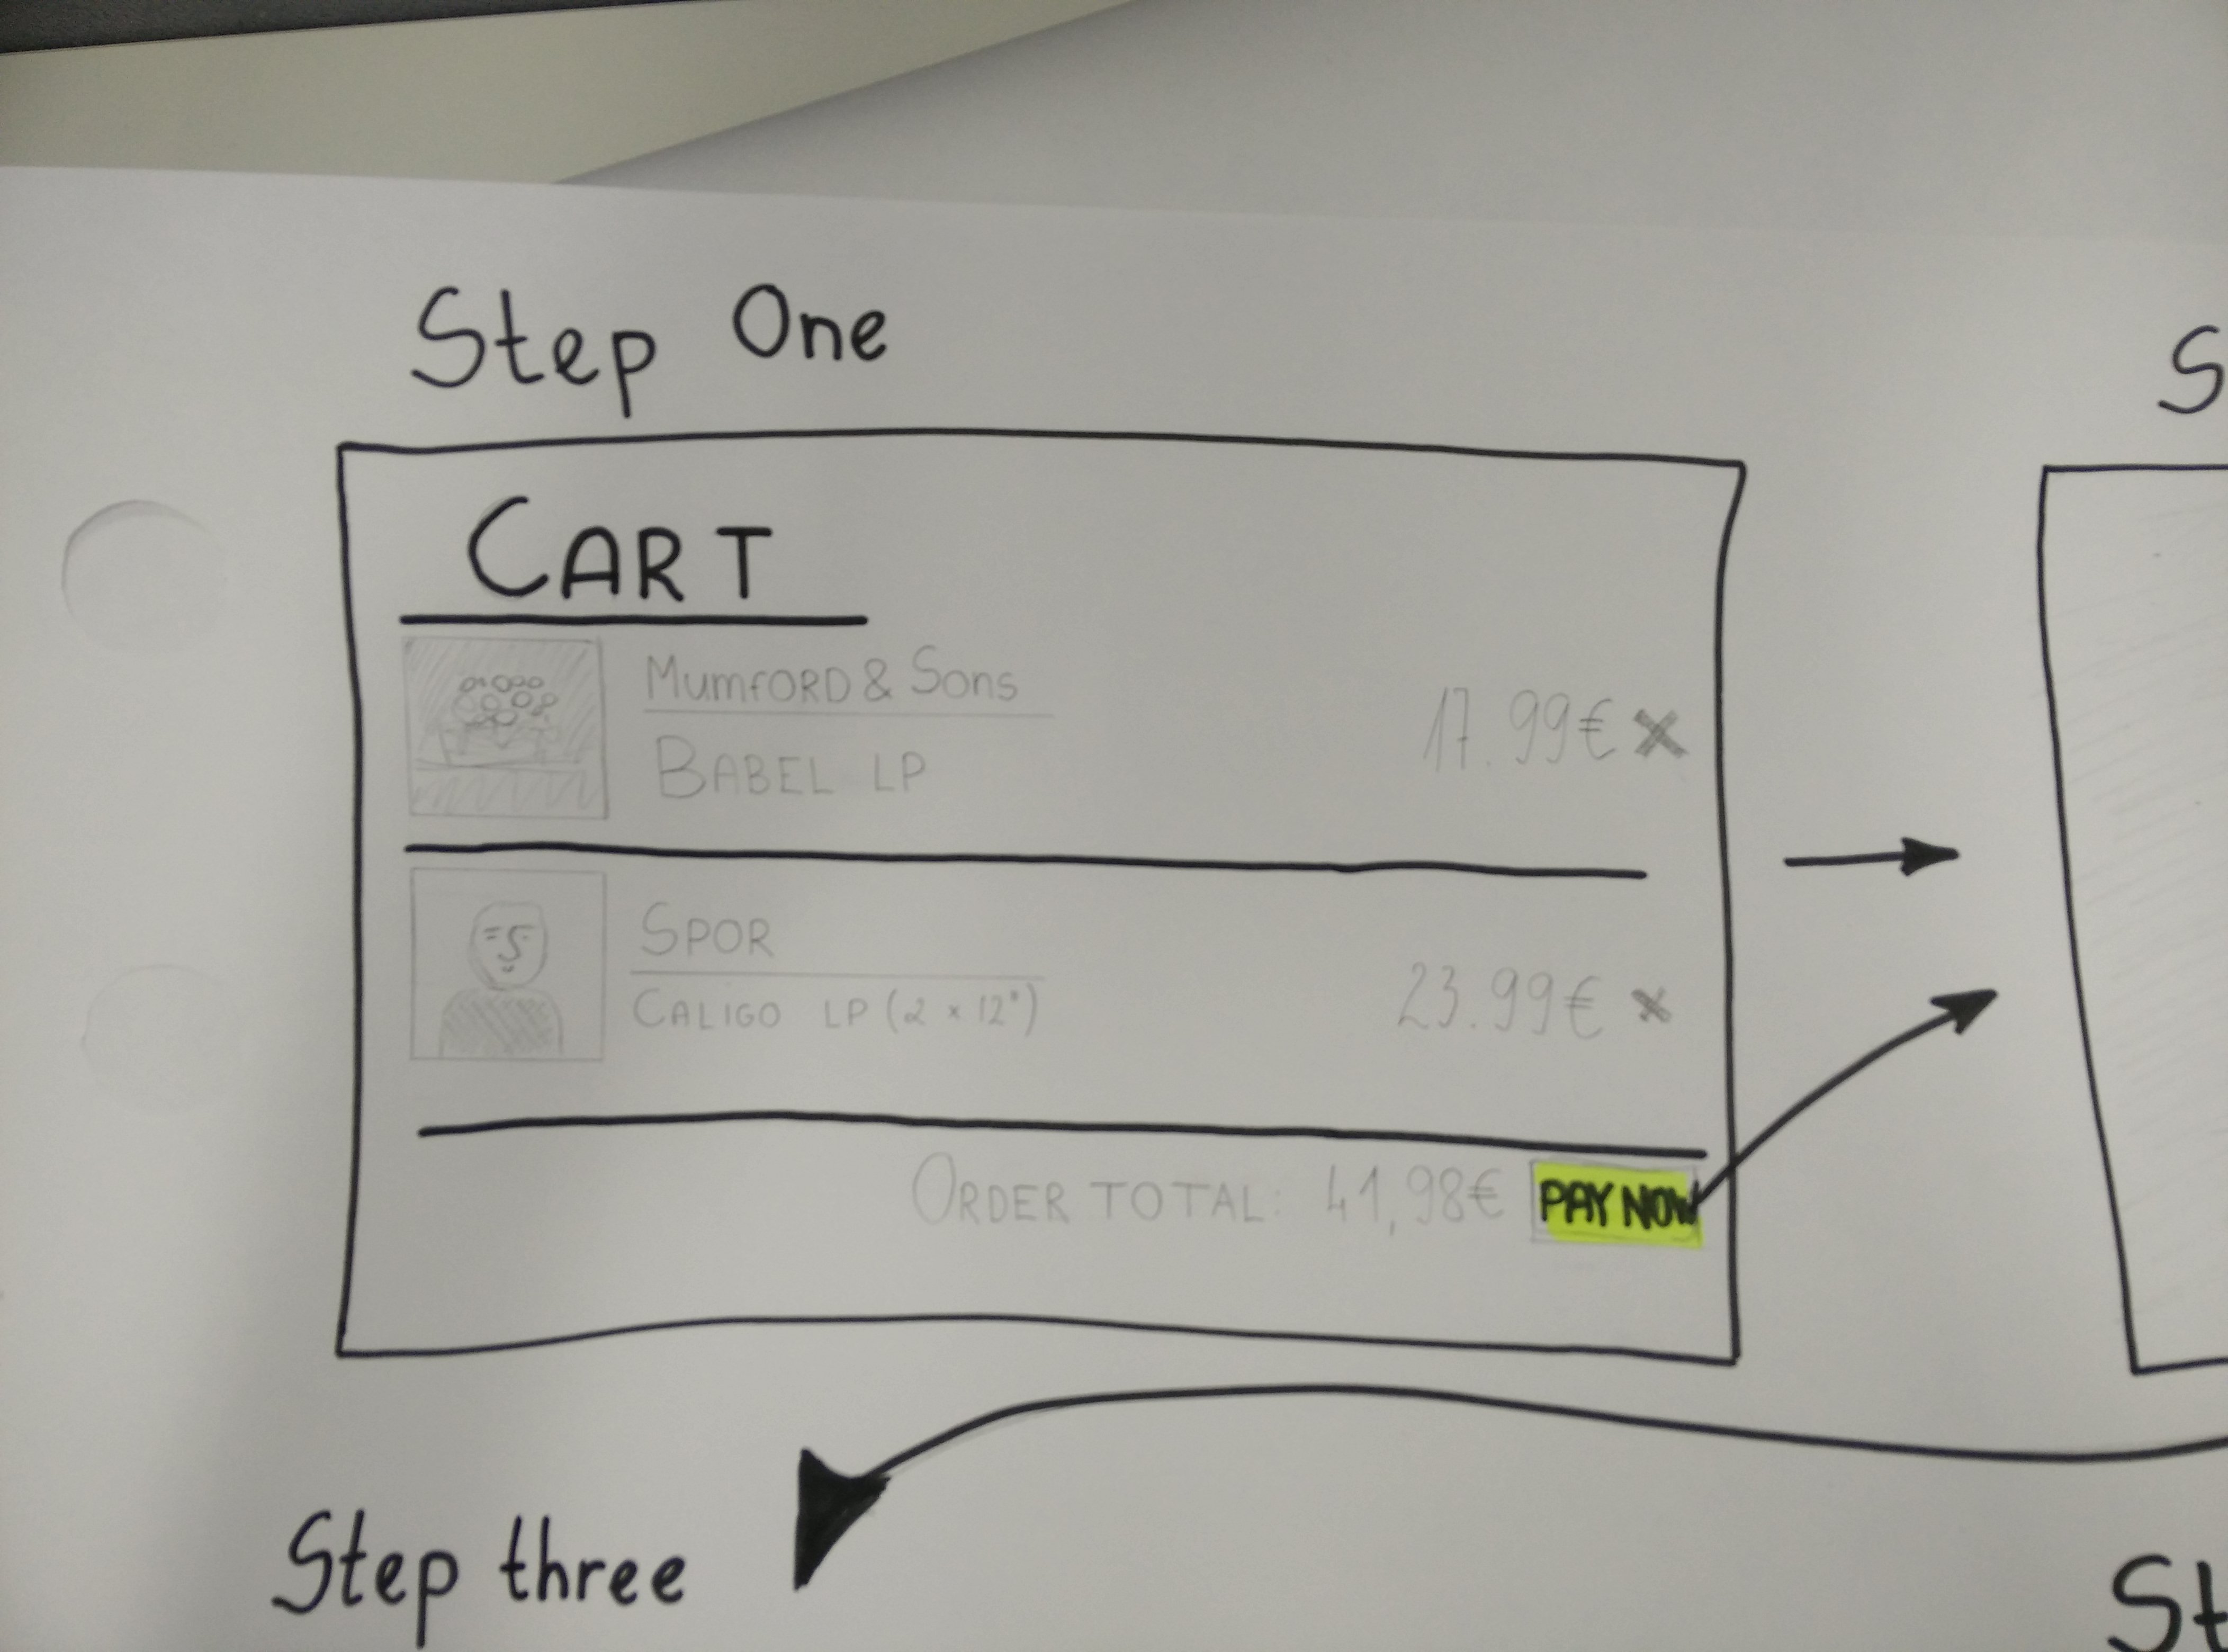 Step One
CART
Mumford & Sons
BABEL LP
17.99€ ×
SPOR
CALIGO LP (2 × 12")
23.99€ ×
ORDER TOTAL: 41,98€ PAY NOW
Step three